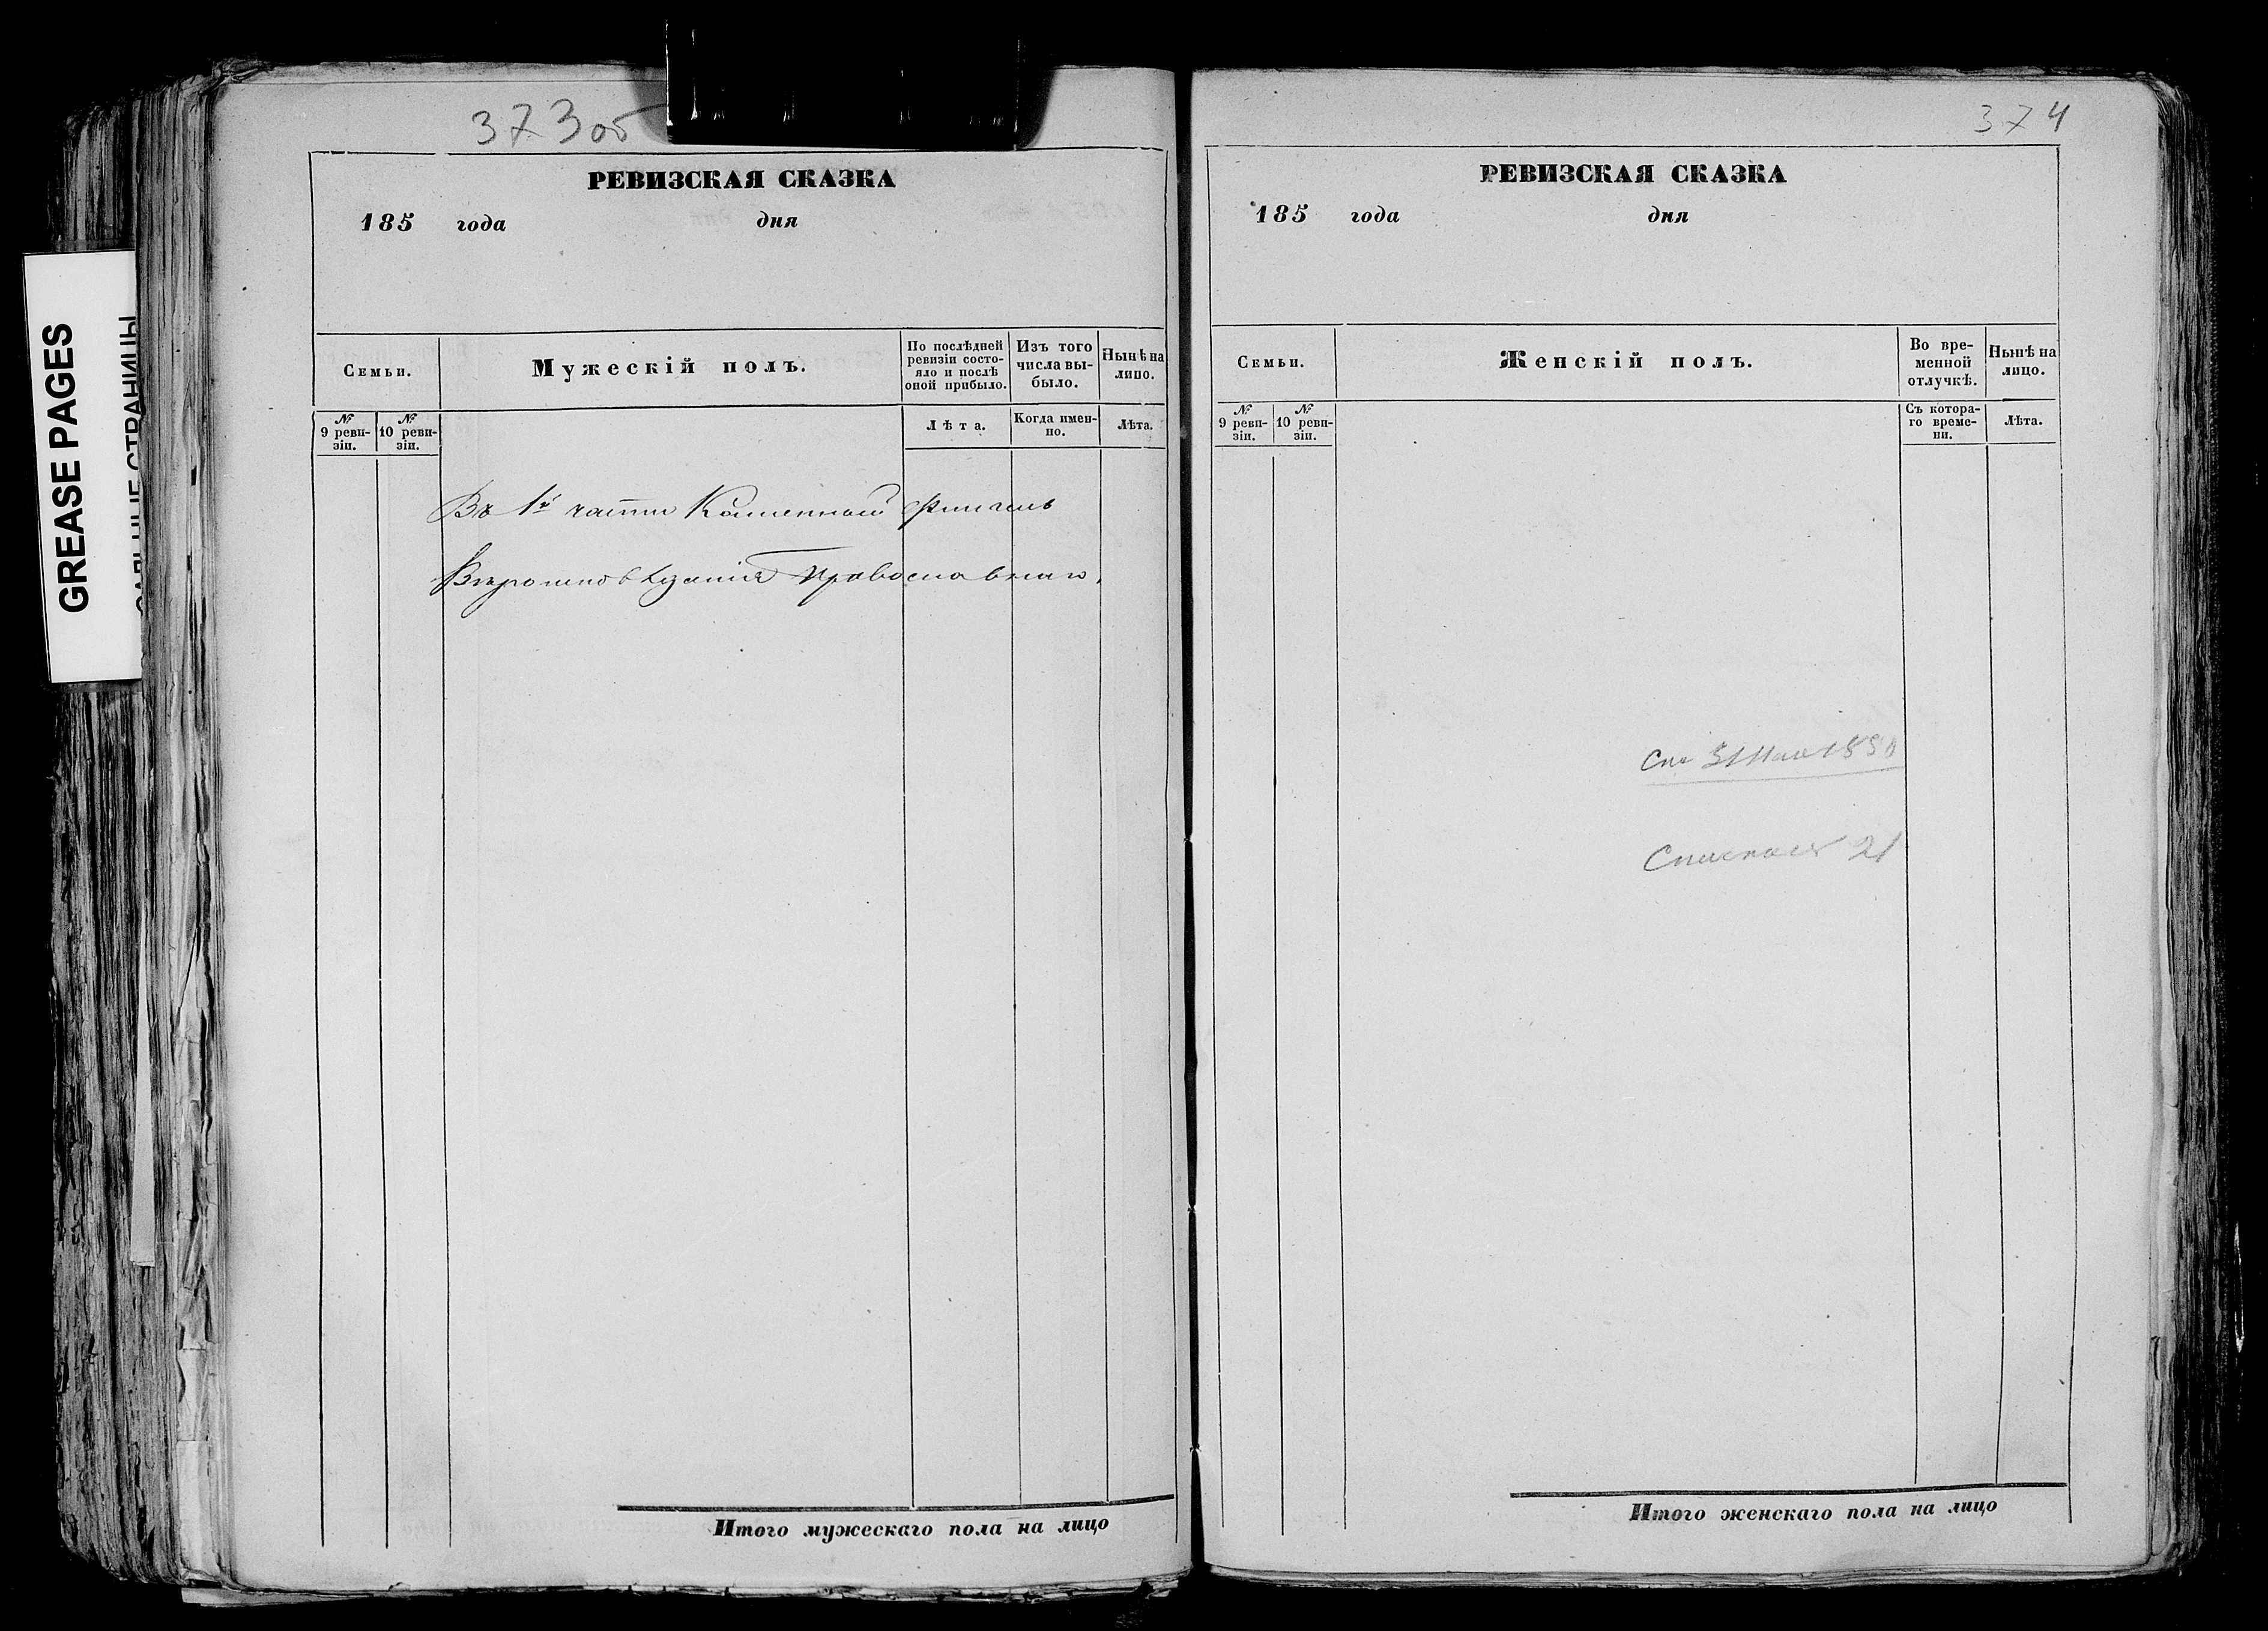 373 об
РЕВИЗСКАЯ СКАЗКА
185 года дня
Семьи.
Мужескій полъ.
По послѣдней ревизіи состо-
яло и послѣ
оной прибыло.
Изъ того
числа вы-
было.
Нынѣ на
лицо.
№ 9 реви-
зіи.
№ 10 реви-
зіи.
Лѣта.
Когда имен-
но.
Лѣта.
Въ 1й части Каменный флигель
Вѣроисповѣданія Православнаго.
Итого мужескаго пола на лицо
374
РЕВИЗСКАЯ СКАЗКА
185 года дня
Семьи.
Женскій полъ.
Во вре-
менной
отлучкѣ.
Нынѣ на
лицо.
№ 9 реви-
зіи.
№ 10 реви-
зіи.
Съ котора-
го време-
ни.
Лѣта.
31 Мая 185
21
Итого женскаго пола на лицо
GREASE PAGES
СТРАНИЦЫ